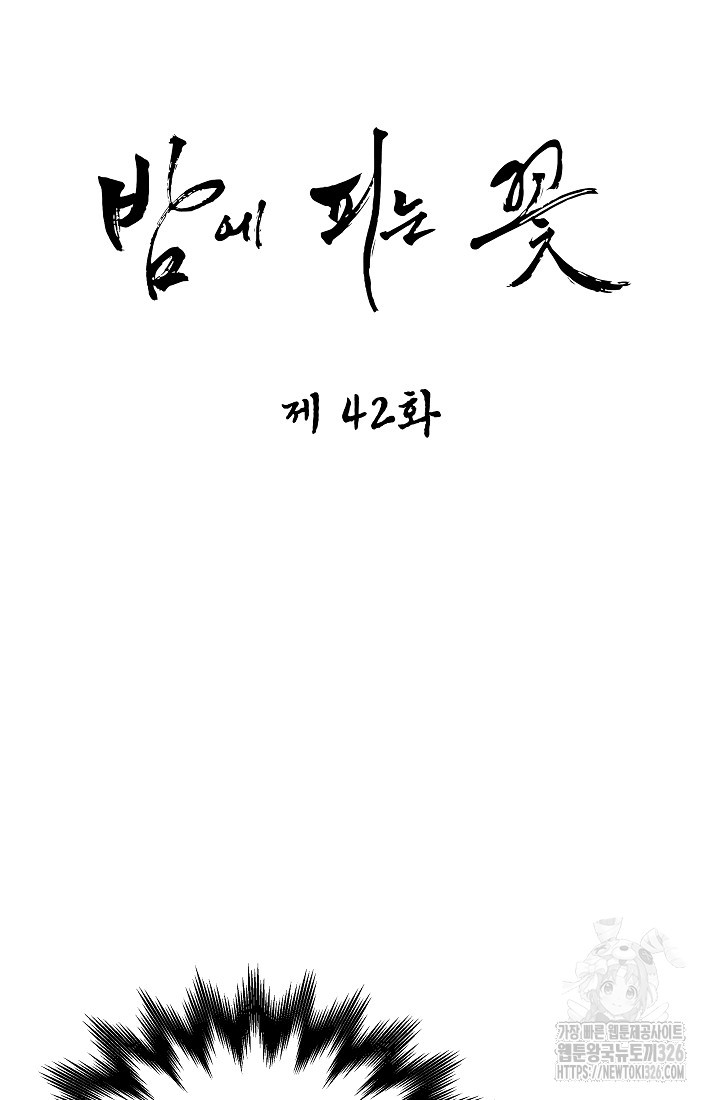 밤에 피는 꽃
제 42화
가장 빠른 웹툰제공사이트
웹툰왕국뉴토끼326
HTTPS://NEWTOKI326.COM